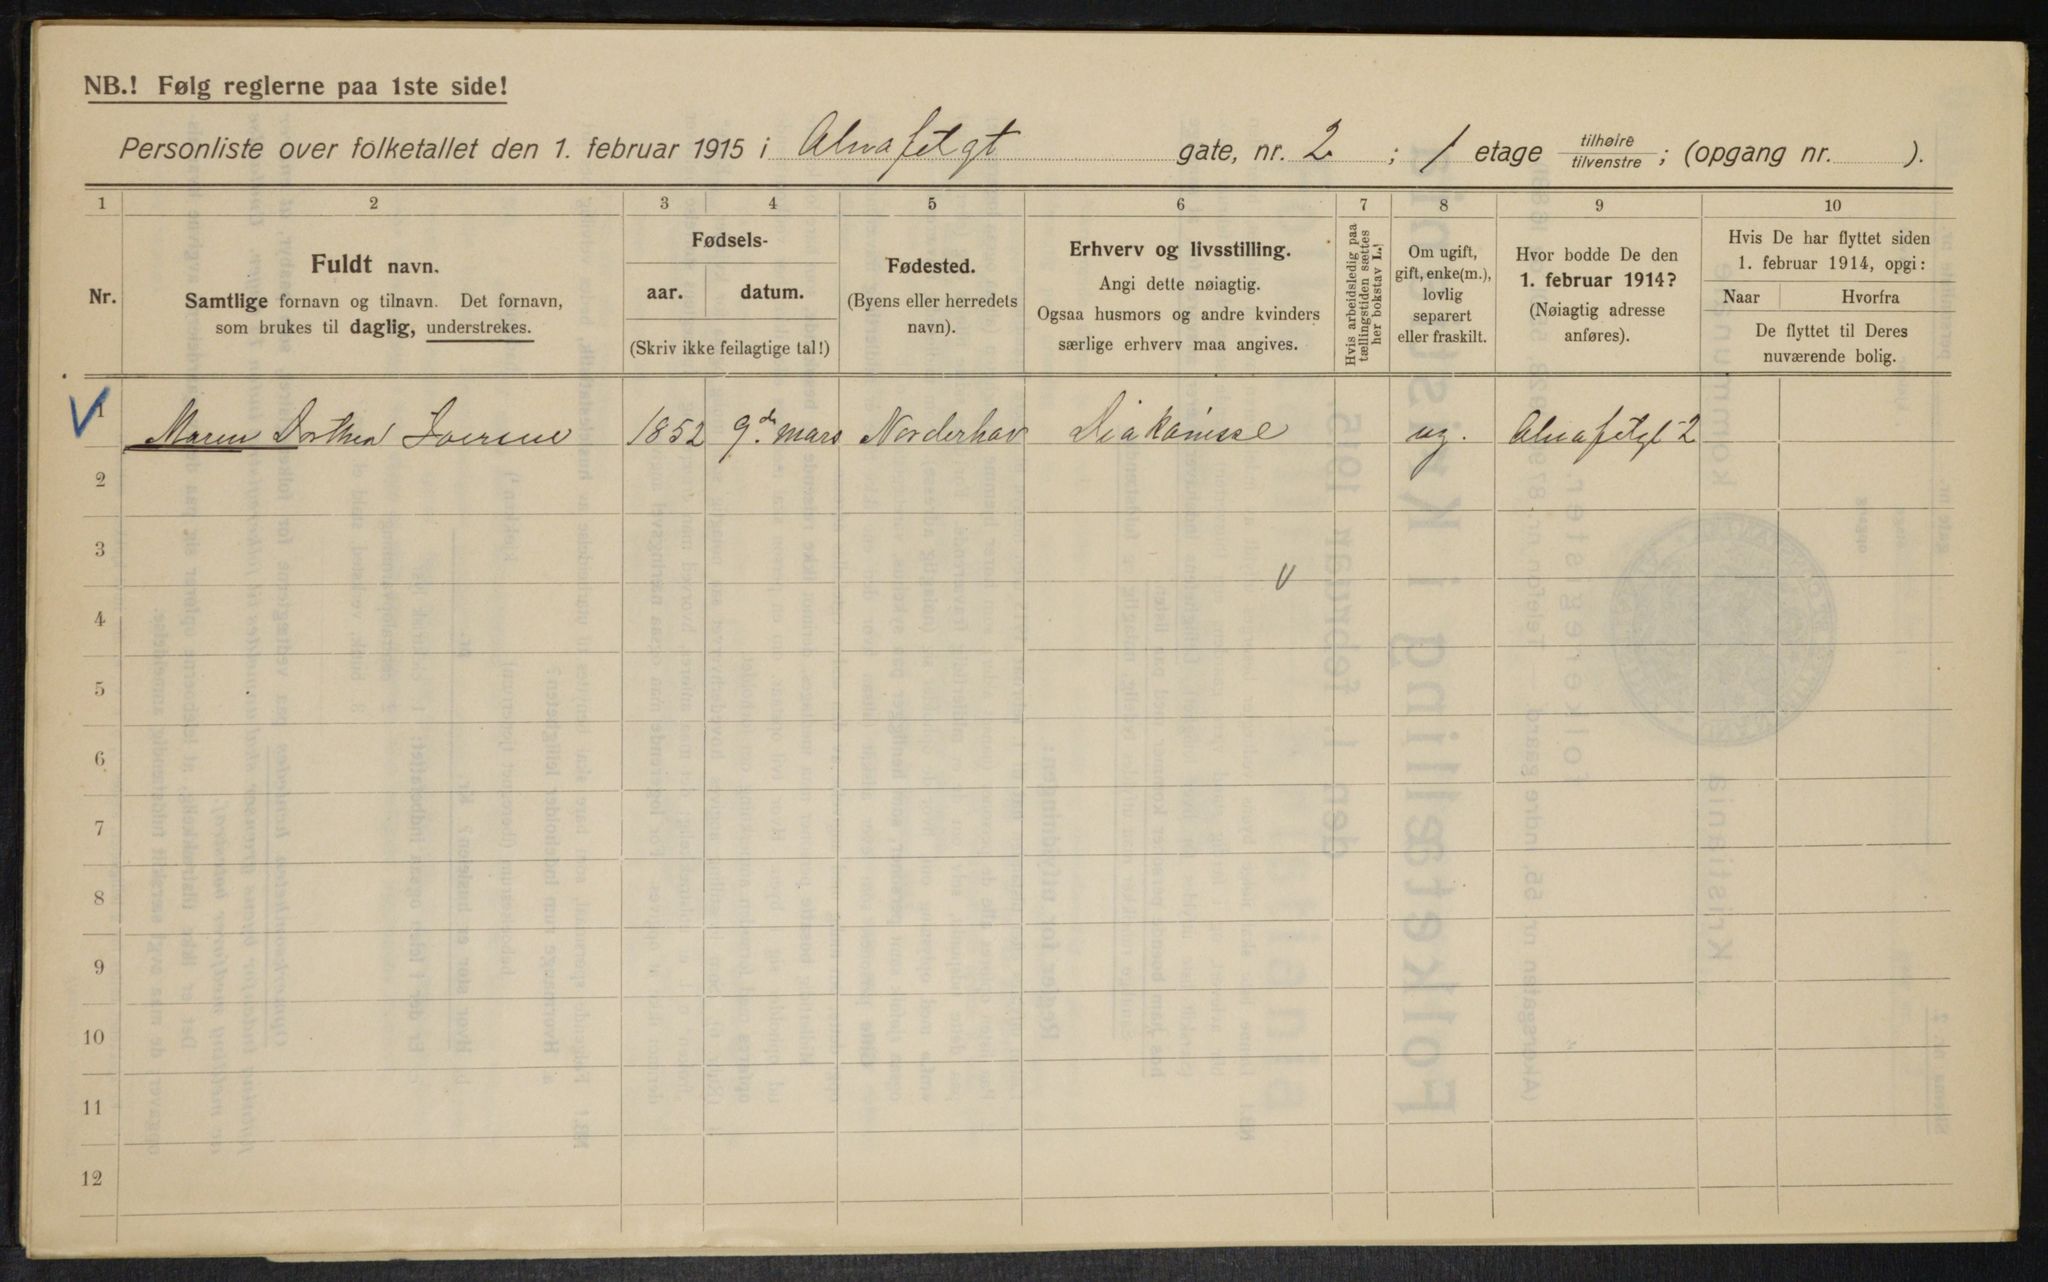 NB.! Følg reglerne paa 1ste side!
Personliste over folketallet den 1. februar 1915 i Alnafetgt gate, nr. 2 ; 1 etage tilhøire / tilvenstre ; (opgang nr. ).
1 2 3 4 5 6 7 8 9 10
Nr.
Fuldt navn.
Samtlige fornavn og tilnavn. Det fornavn,
som brukes til daglig, understrekes.
Fødsels-
aar. datum.
(Skriv ikke feilagtige tal!)
Fødested.
(Byens eller herredets
navn).
Erhverv og livsstilling.
Angi dette nøiagtig.
Ogsaa husmors og andre kvinders
særlige erhverv maa angives.
Hvis arbeidsledig paa
tællingstiden sættes
her bokstav L.!
Om ugift,
gift, enke(m.),
lovlig
separert
eller fraskilt.
Hvor bodde De den
1. februar 1914?
(Nøiagtig adresse
anføres).
Hvis De har flyttet siden
1. februar 1914, opgi:
Naar Hvorfra
De flyttet til Deres
nuværende bolig.
V 1 Maren Dorthea Iversen 1852 9de mars Norderhov Diakonisse ug. Alnafetgt 2
2
3
V
4
5
6
7
8
9
10
11
12